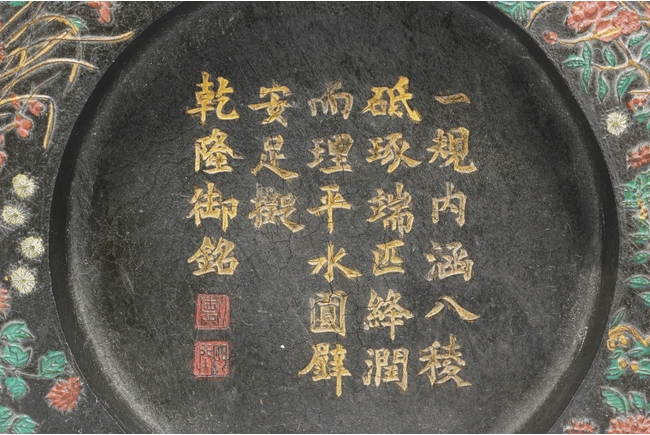 一規內涵八稜
砥琢端匹絳潤
而理平水圓璧
安足擬
乾隆御銘